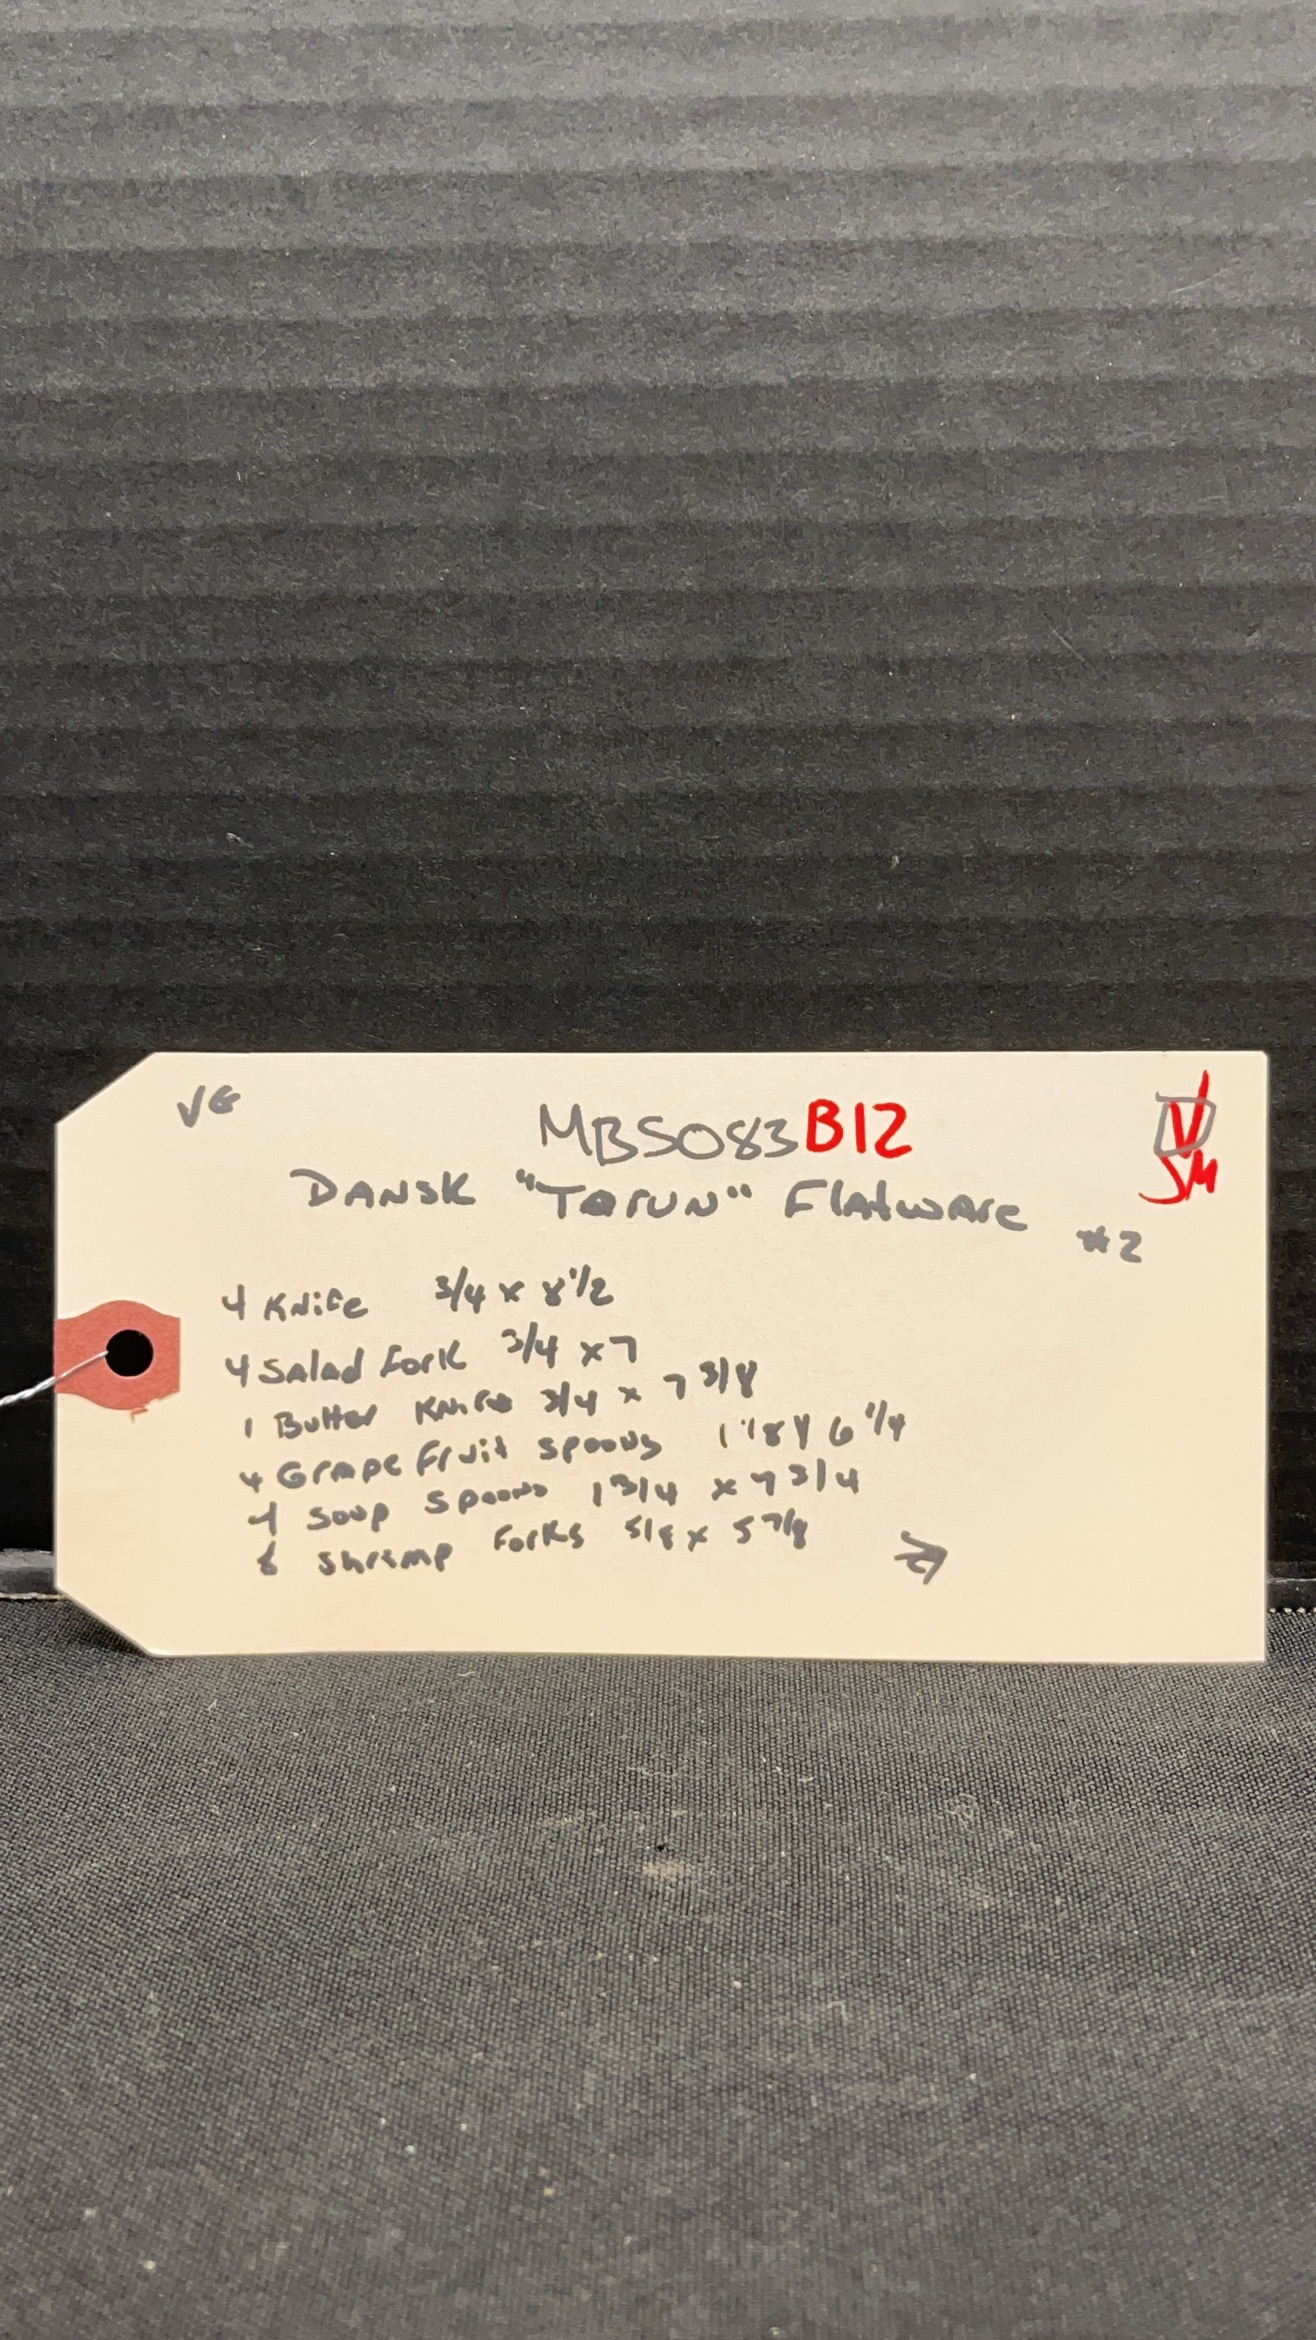 VG
MBS083 B12
V
SM
DANSK "TORUN" Flatware
#2
4 Knife 3/4 x 8 1/2
4 Salad Fork 3/4 x 7
1 Butter Knife 3/4 x 7 3/8
4 Grape Fruit Spoons 1 1/8 x 6 1/4
4 Soup Spoons 1 3/4 x 7 3/4
Shrimp Forks 5/8 x 5 7/8